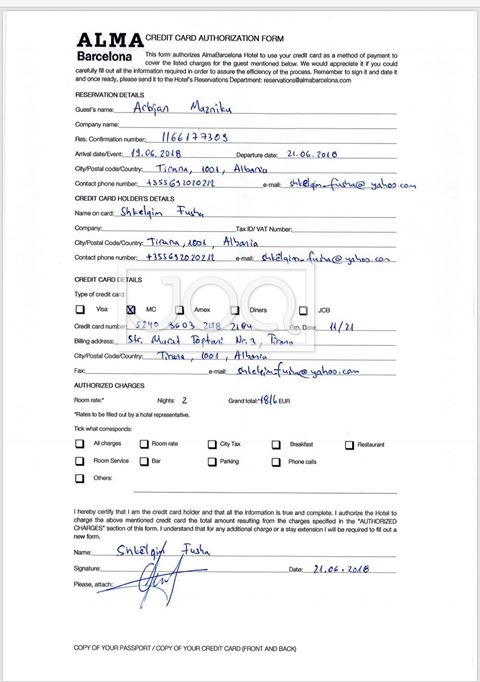 ALMA
Barcelona
CREDIT CARD AUTHORIZATION FORM
This form authorizes AlmaBarcelona Hotel to use your credit card as a method of payment to
cover the listed charges for the guest mentioned below. We would appreciate it if you could
carefully fill out all the information required in order to assure the efficiency of the process. Remember to sign it and date it
and once ready, please send it to the Hotel's Reservations Department: reservations@almabarcelona.com
RESERVATION DETAILS
Guest's name: Arbjan Mazniku
Company name:
Res. Confirmation number: 1166177309
Arrival date/Event: 19.06.2018 Departure date: 21.06.2018
City/Postal code/Country: Tirana, 1001, Albania
Contact phone number: +355692020212 e-mail: shkelqim_fusha@yahoo.com
CREDIT CARD HOLDER'S DETAILS
Name on card: Shkelqim Fusha
Company: Tax ID/ VAT Number:
City/Postal Code/Country: Tirana, 1001, Albania
Contact phone number: +355692020212 e-mail: shkelqim_fusha@yahoo.com
CREDIT CARD DETAILS
Type of credit card:
Visa MC Amex Diners JCB
JOQ
Credit card number: Exp. Date: 11/21
Billing address: Str. Murat Toptani Nr. Tirana
City/Postal Code/Country: Tirana, 1001, Albania
Fax: e-mail: shkelqim_fusha@yahoo.com
AUTHORIZED CHARGES
Room rate:* Nights: 2 Grand total:* 1816 EUR
*Rates to be filled out by a hotel representative.
Tick what corresponds:
All charges Room rate City Tax Breakfast Restaurant
Room Service Bar Parking Phone calls
Others:
I hereby certify that I am the credit card holder and that all the information is true and complete. I authorize the Hotel to
charge the above mentioned credit card the total amount resulting from the charges specified in the "AUTHORIZED
CHARGES" section of this form. I understand that for any additional charge or a stay extension I will be required to fill out a
new form.
Name: Shkelqim Fusha
Signature: Date: 21.06.2018
Please, attach:
COPY OF YOUR PASSPORT / COPY OF YOUR CREDIT CARD (FRONT AND BACK)